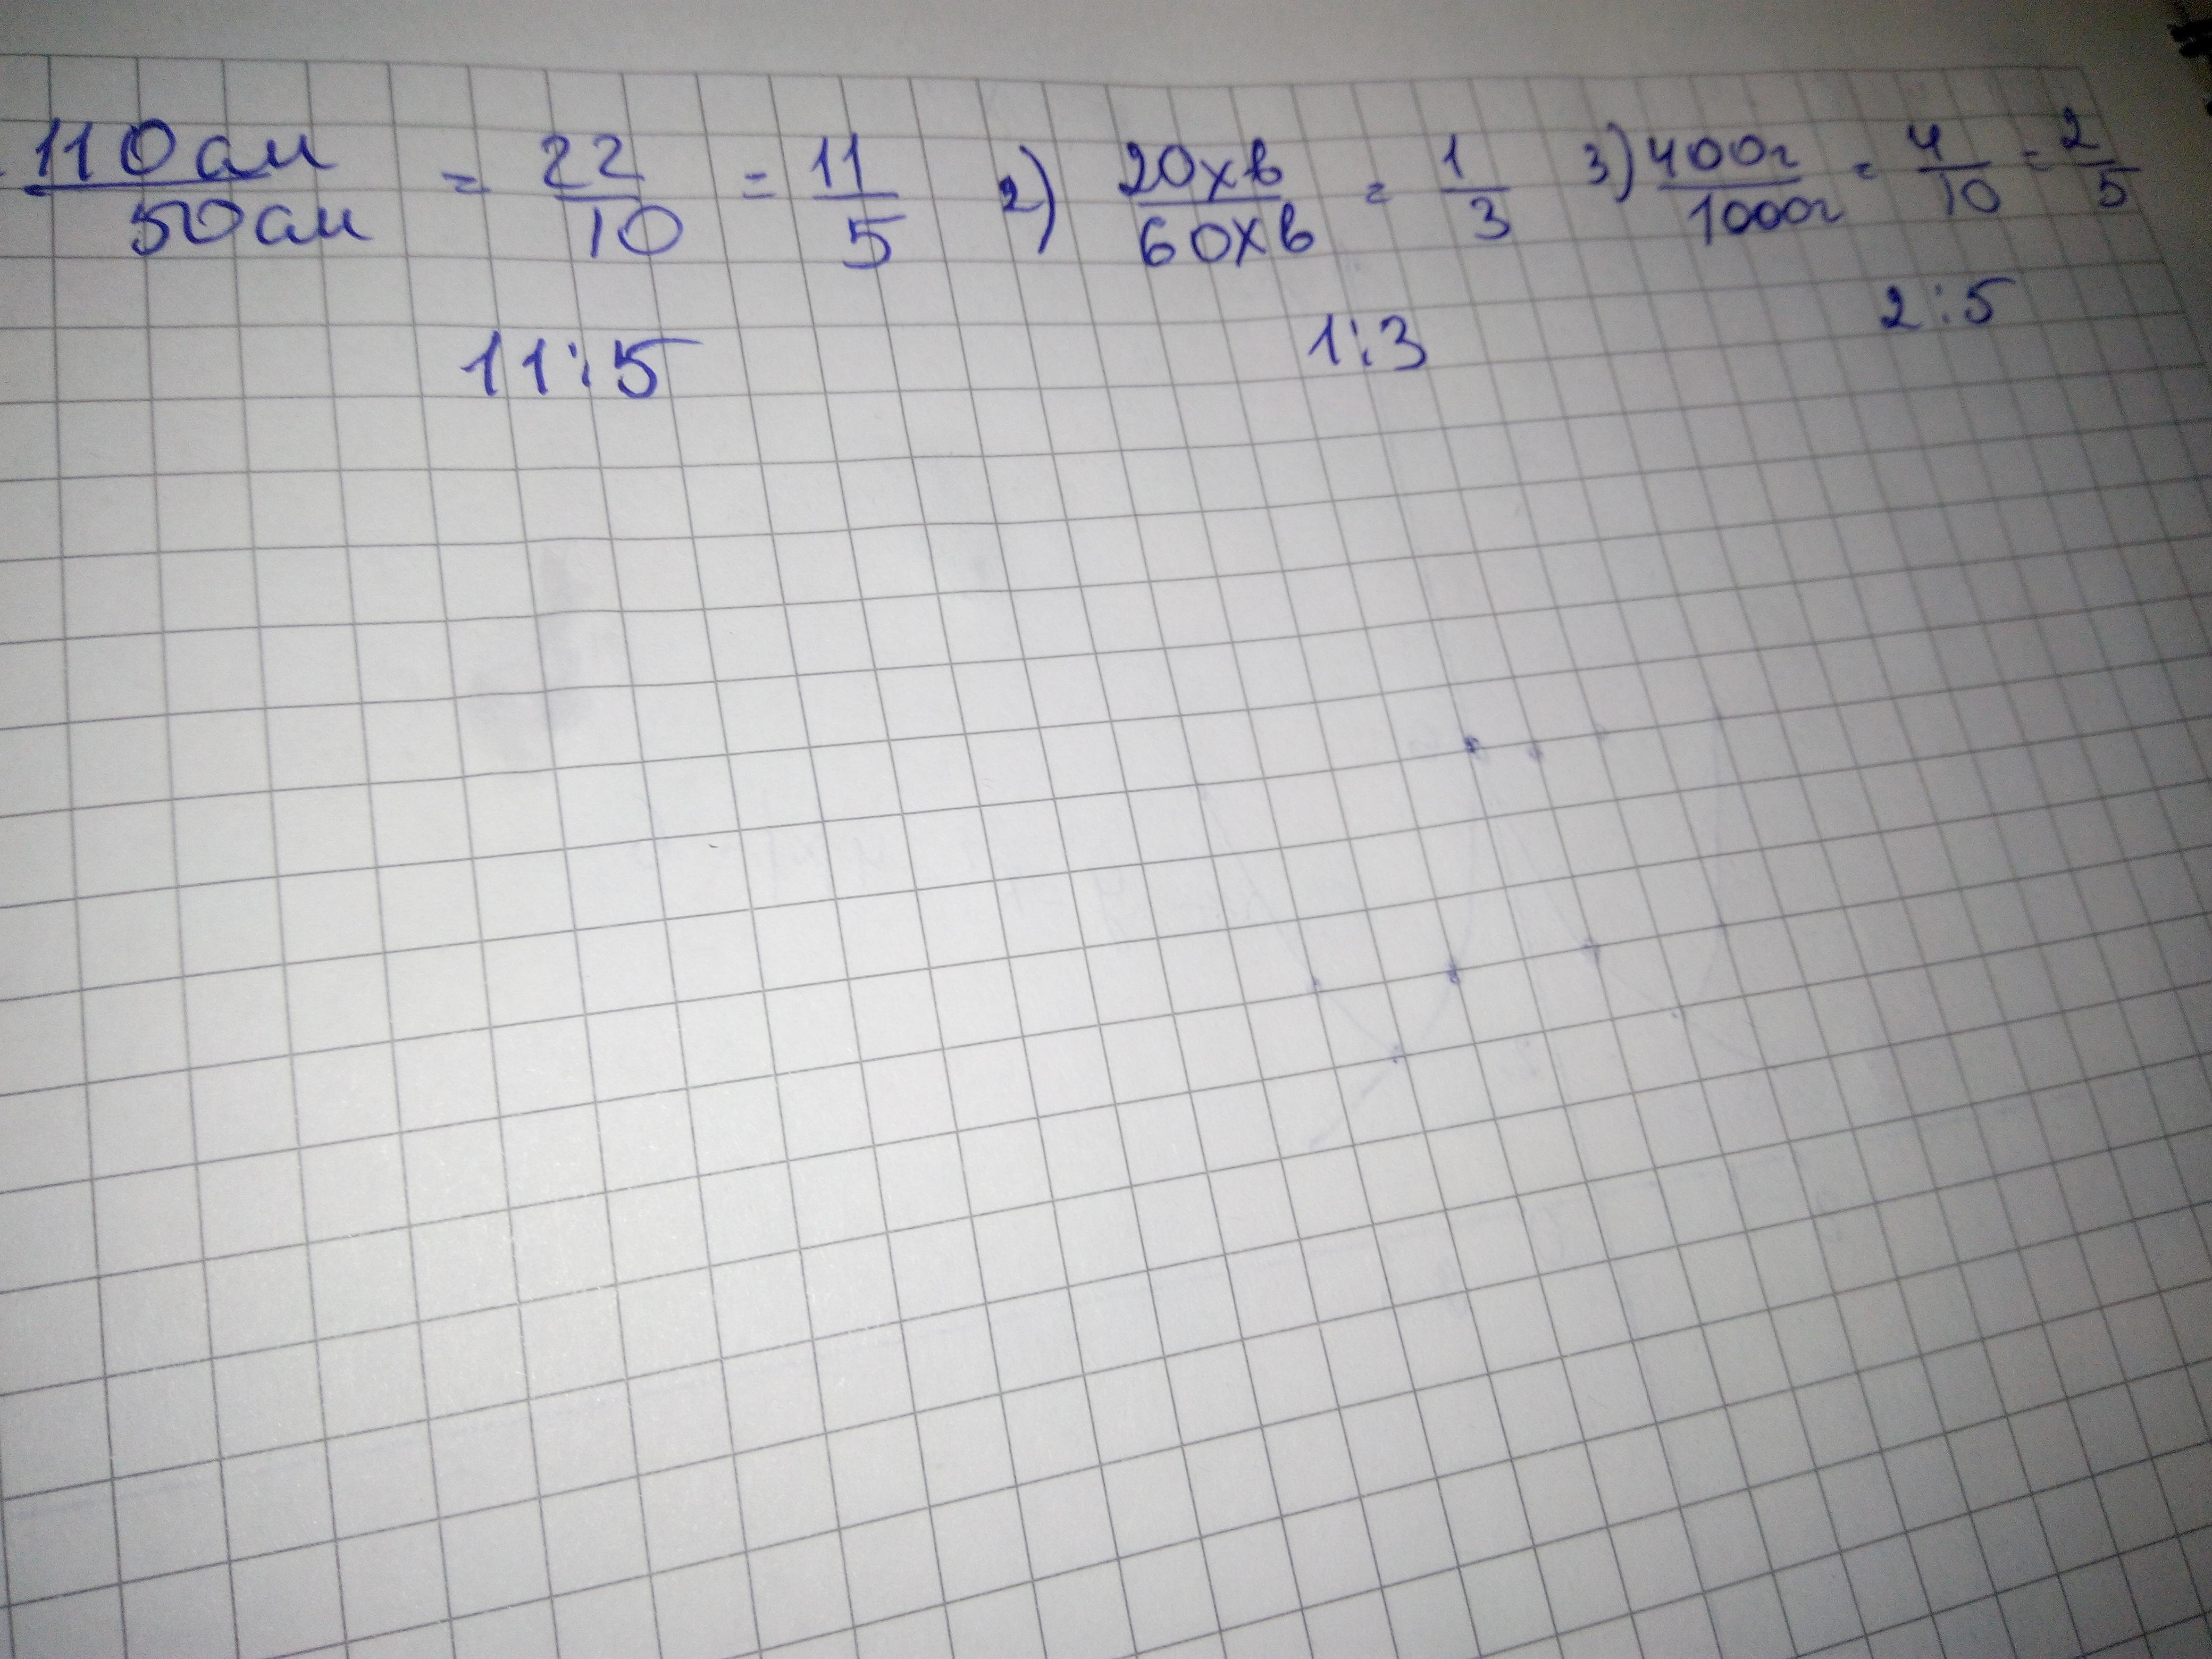 110см/50см = 22/10 = 11/5 2) 20хв/60хв = 1/3 3) 400г/1000г = 4/10 = 2/5
11:5 1:3 2:5